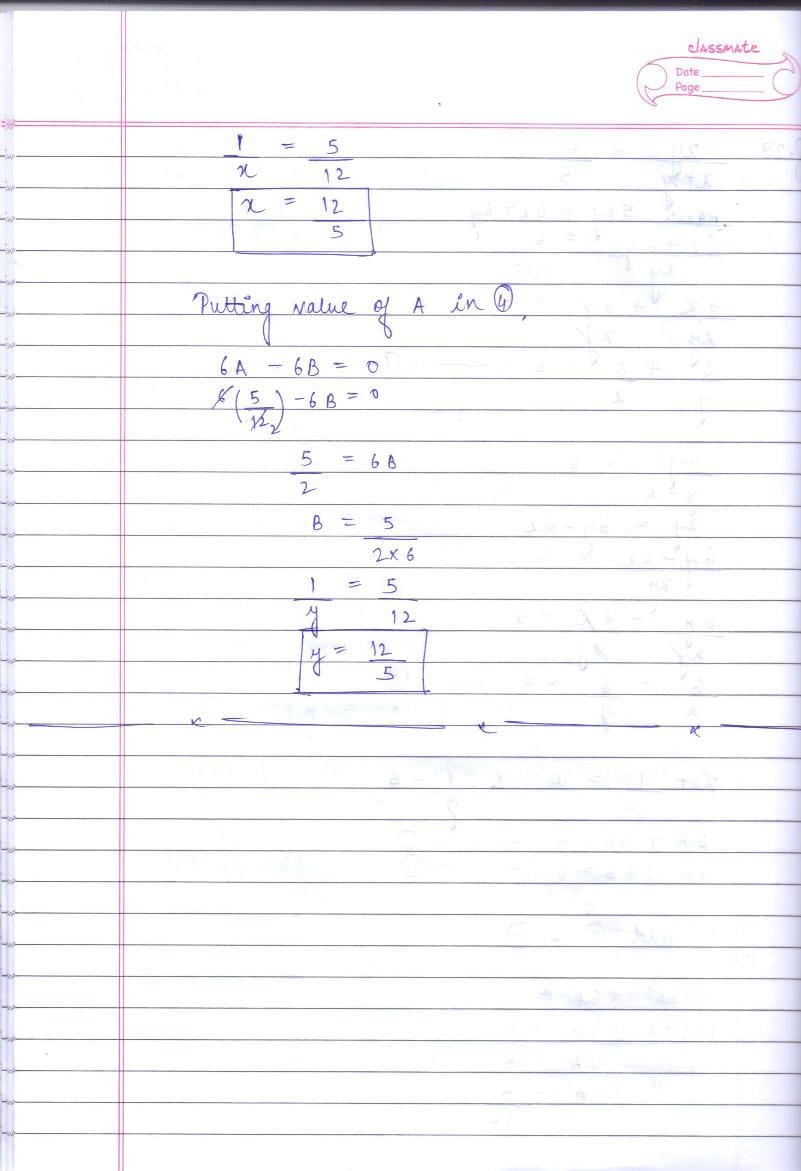 classmate
Date
Page
1/x = 5/12
x = 12/5
Putting value of A in ④,
6A - 6B = 0
6(5/12 2) - 6B = 0
5/2 = 6B
B = 5/2×6
1/y = 5/12
y = 12/5